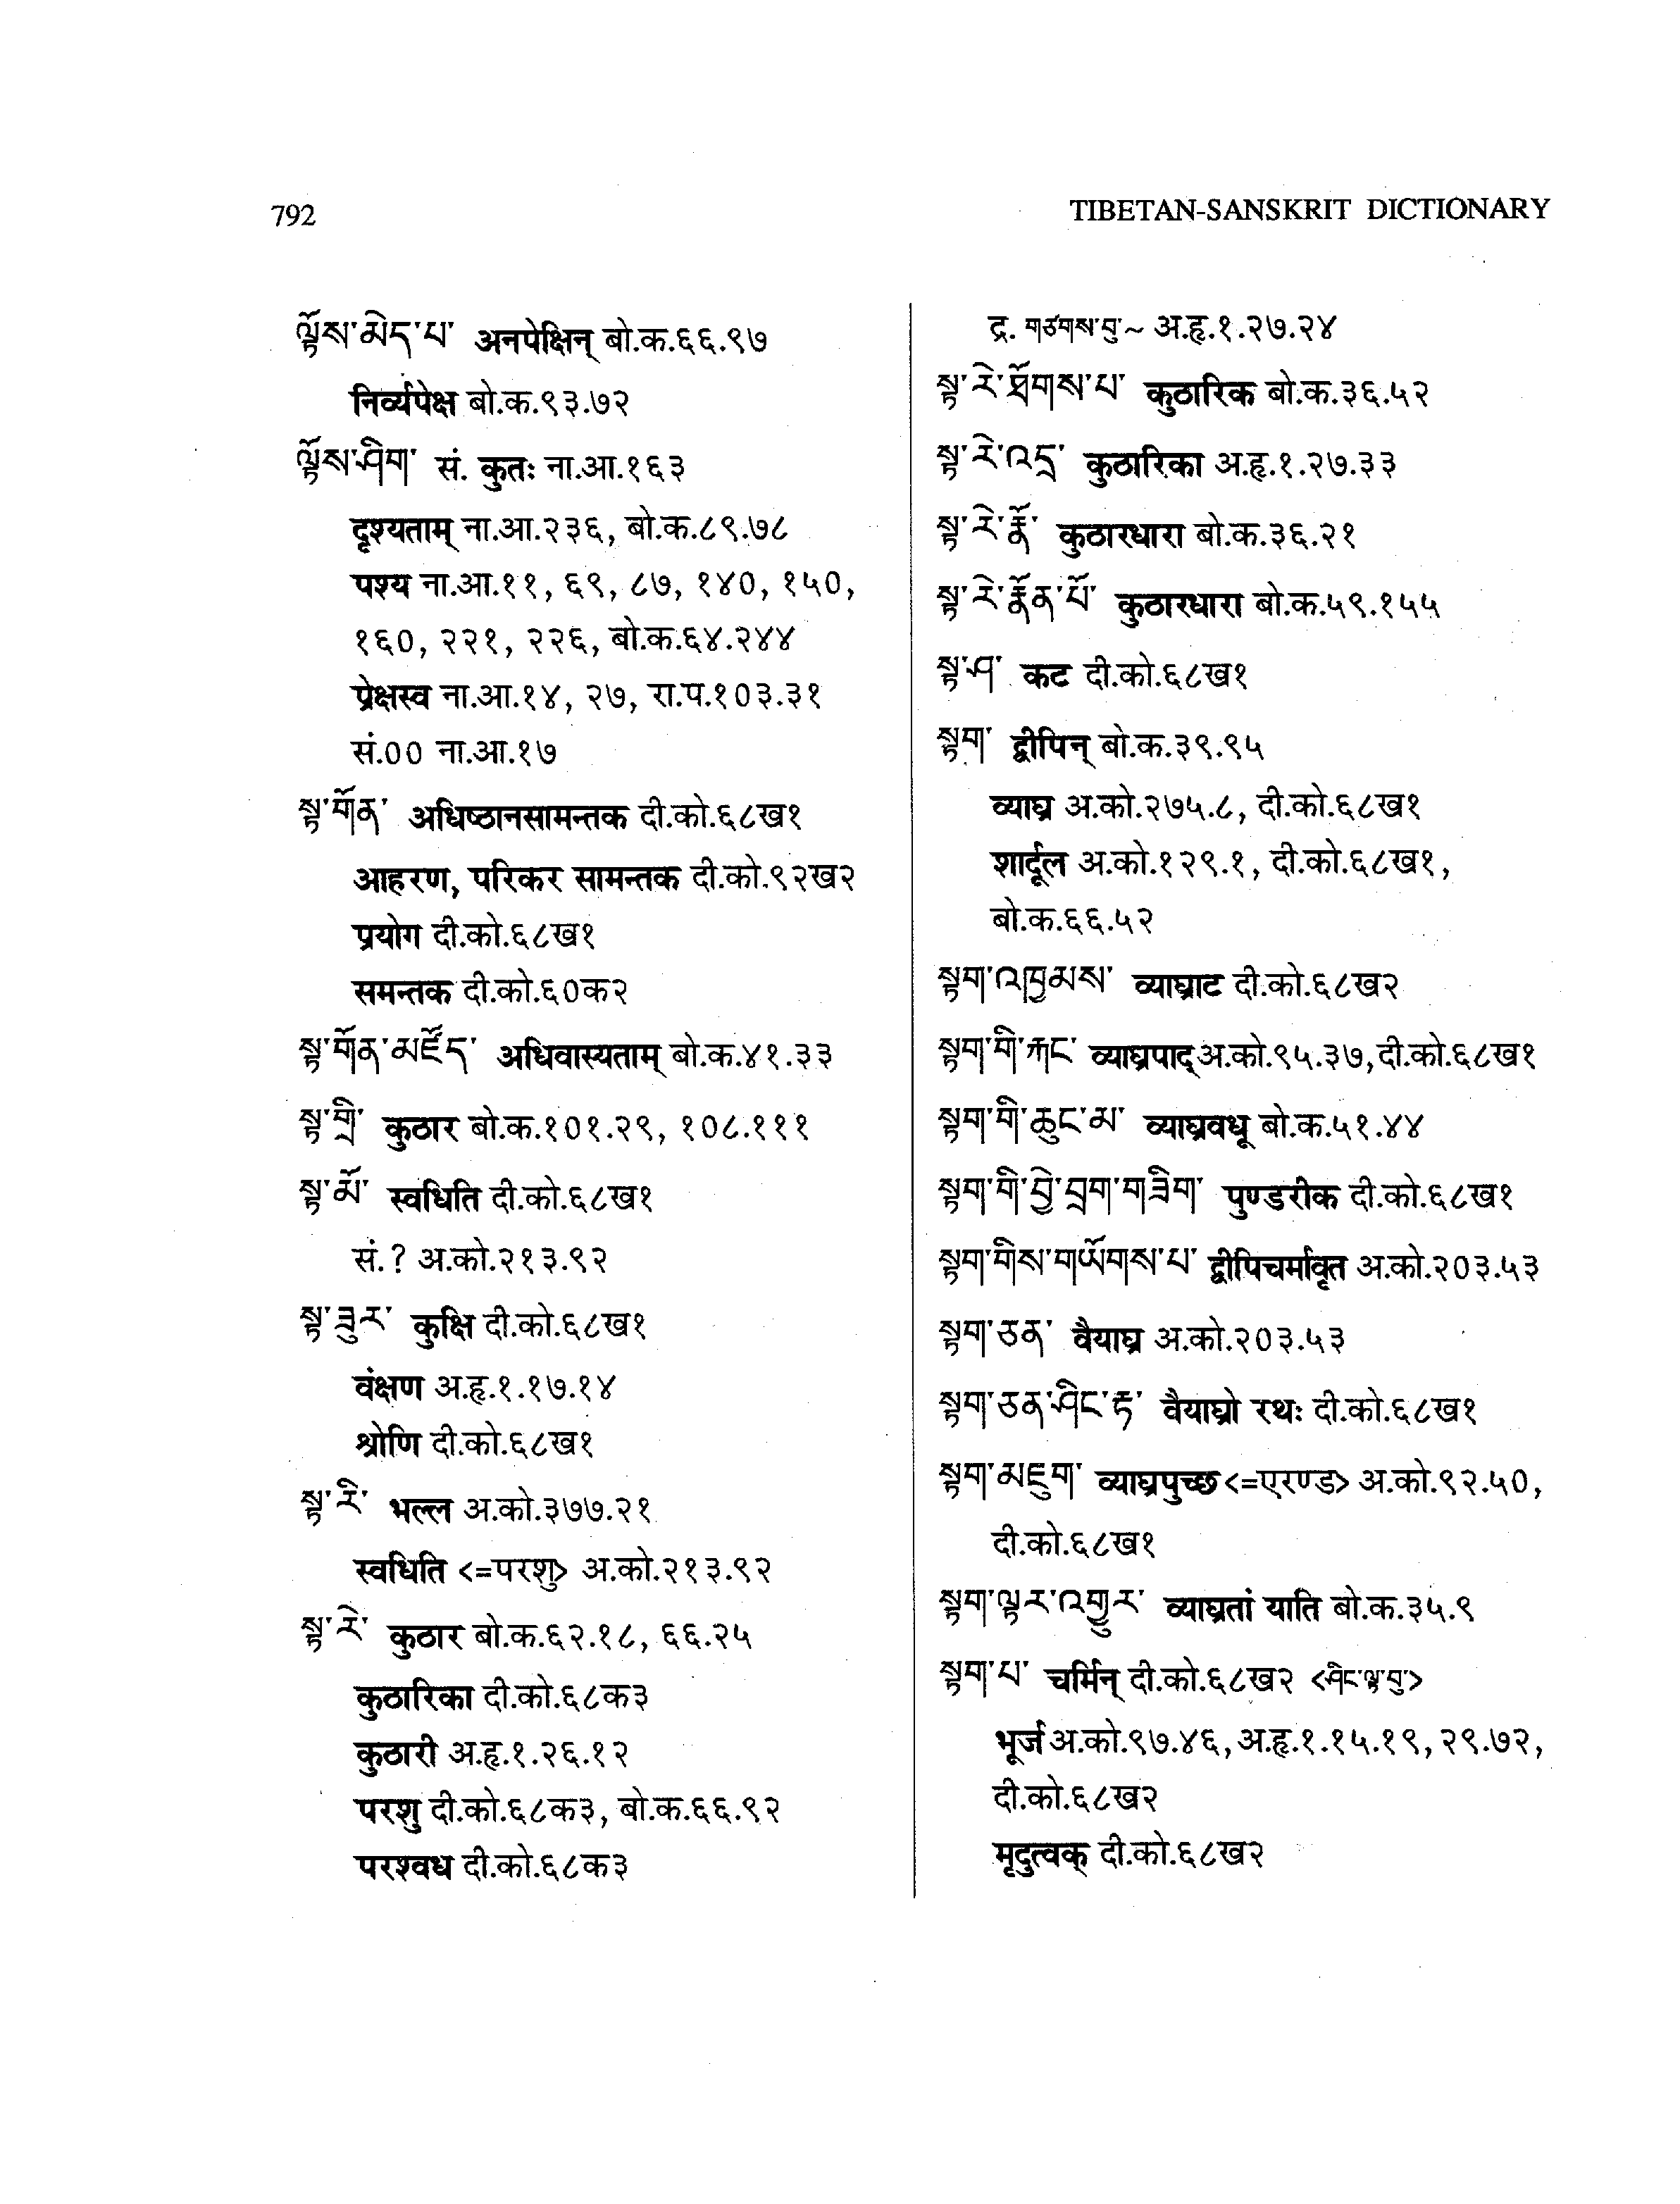 792
TIBETAN-SANSKRIT DICTIONARY
ལྟོས་མེད་པ་ अनपेक्षिन् बो.क.६६.९७
निर्व्यपेक्ष बो.क.९३.७२
ལྟོས་ཤིག་ सं. कुतः ना.आ.१६३
दृश्यताम् ना.आ.२३६, बो.क.८९.७८
पश्य ना.आ.११, ६९, ८७, १४०, १५०,
१६०, २२१, २२६, बो.क.६४.२४४
प्रेक्षस्व ना.आ.१४, २७, रा.प.१०३.३१
सं.०० ना.आ.१७
སྟ་གོན་ अधिष्ठानसामन्तक दी.को.६८ख१
आहरण, परिकर सामन्तक दी.को.९२ख२
प्रयोग दी.को.६८ख१
समन्तक दी.को.६०क२
སྟ་གོན་མཛོད་ अधिवास्यताम् बो.क.४१.३३
སྟ་གྲི་ कुठार बो.क.१०१.२९, १०८.१११
སྟ་མོ་ स्वधिति दी.को.६८ख१
सं.? अ.को.२१३.९२
སྟ་ཟུར་ कुक्षि दी.को.६८ख१
वंक्षण अ.हृ.१.१७.१४
श्रोणि दी.को.६८ख१
སྟ་རི་ भल्ल अ.को.३७७.२१
स्वधिति <=परशु> अ.को.२१३.९२
སྟ་རེ་ कुठार बो.क.६२.१८, ६६.२५
कुठारिका दी.को.६८क३
कुठारी अ.हृ.१.२६.१२
परशु दी.को.६८क३, बो.क.६६.९२
परश्वध दी.को.६८क३
द्र. གཙགས་བུ་~ अ.हृ.१.२७.२४
སྟ་རེ་ཐོགས་པ་ कुठारिक बो.क.३६.५२
སྟ་རེ་འདྲ་ कुठारिका अ.हृ.१.२७.३३
སྟ་རེ་རྣོ་ कुठारधारा बो.क.३६.२१
སྟ་རེ་རྣོན་པོ་ कुठारधारा बो.क.५९.१५५
སྟ་ཤ་ कट दी.को.६८ख१
སྟག་ द्वीपिन् बो.क.३९.९५
व्याघ्र अ.को.२७५.८, दी.को.६८ख१
शार्दूल अ.को.१२९.१, दी.को.६८ख१,
बो.क.६६.५२
སྟག་འཁྱམས་ व्याघ्राट दी.को.६८ख२
སྟག་གི་རྐང་ व्याघ्रपाद् अ.को.९५.३७, दी.को.६८ख१
སྟག་གི་ཆུང་མ་ व्याघ्रवधू बो.क.५१.४४
སྟག་གི་བྱེ་བྲག་གཟིག་ पुण्डरीक दी.को.६८ख१
སྟག་གིས་གཡོགས་པ་ द्वीपिचर्मावृत अ.को.२०३.५३
སྟག་ཅན་ वैयाघ्र अ.को.२०३.५३
སྟག་ཅན་ཤིང་རྟ་ वैयाघ्रो रथः दी.को.६८ख१
སྟག་མཇུག་ व्याघ्रपुच्छ <=एरण्ड> अ.को.९२.५०,
दी.को.६८ख१
སྟག་ལྟར་འགྱུར་ व्याघ्रतां याति बो.क.३५.९
སྟག་པ་ चर्मिन् दी.को.६८ख२ <ཤིང་ལྟ་བུ་>
भूर्ज अ.को.९७.४६, अ.हृ.१.१५.१९, २९.७२,
दी.को.६८ख२
मृदुत्वक् दी.को.६८ख२